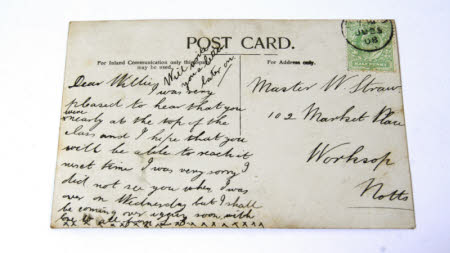 POST CARD.
For Inland Communication only this space may be used.
For Address only.
HALF PENNY
Will write
you a letter
later on
Dear Willie
I was very
pleased to hear that you
were nearly at the top of the
class and I hope that you
will be able to reach it
next time I was very sorry I
did not see you when I was
over on Wednesday but I shall
be coming over again soon with
love to all from
Master W Straw
102 Market Place
Worksop
Notts